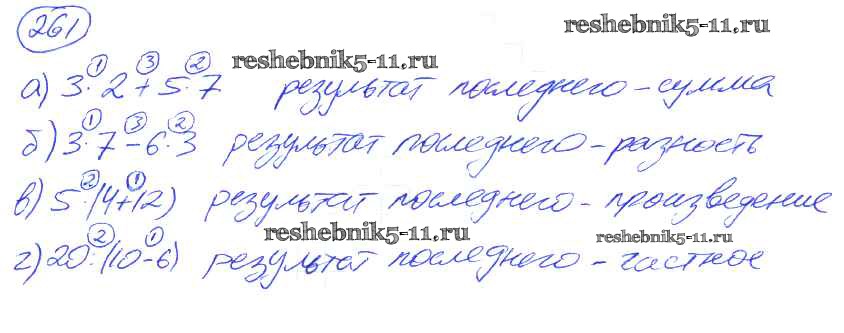 261
reshebnik5-11.ru
reshebnik5-11.ru
а) 3·2+5·7 результат последнего – сумма
① ③ ②
б) 3·7–6·3 результат последнего – разность
① ③ ②
в) 5·(4+12) результат последнего – произведение
② ①
reshebnik5-11.ru
reshebnik5-11.ru
г) 20:(10–6) результат последнего – частное
② ①